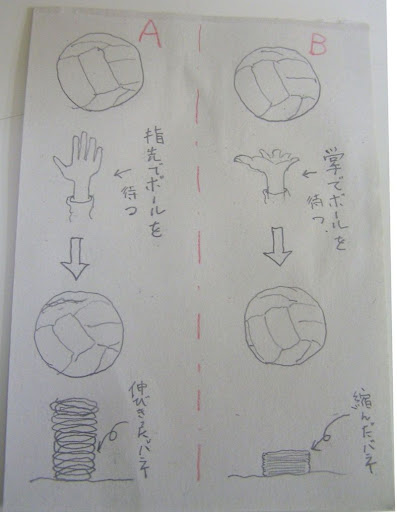 A
指先でボールを
待つ
伸びきったバネ
B
掌でボールを
待つ
縮んだバネ